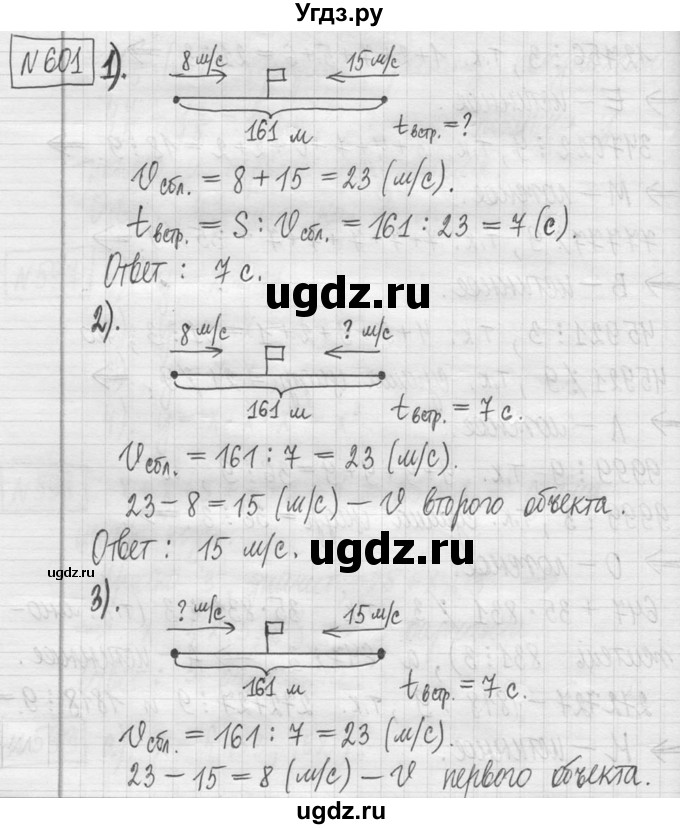 Угдз.ру
№601 1).
8 м/с 15 м/с
161 м tвстр.=?
Vсбл. = 8+15 = 23 (м/с).
tвстр. = S : Vсбл. = 161 : 23 = 7 (с).
Ответ : 7 с.
ugdz.ru
2).
8 м/с ? м/с
161 м tвстр. = 7 с.
Vсбл. = 161 : 7 = 23 (м/с).
23 – 8 = 15 (м/с) – V второго объекта.
Ответ : 15 м/с.
ugdz.ru
ugdz.ru
3).
? м/с 15 м/с
161 м tвстр. = 7 с.
Vсбл. = 161 : 7 = 23 (м/с).
23 – 15 = 8 (м/с) – V первого объекта.
ugdz.ru